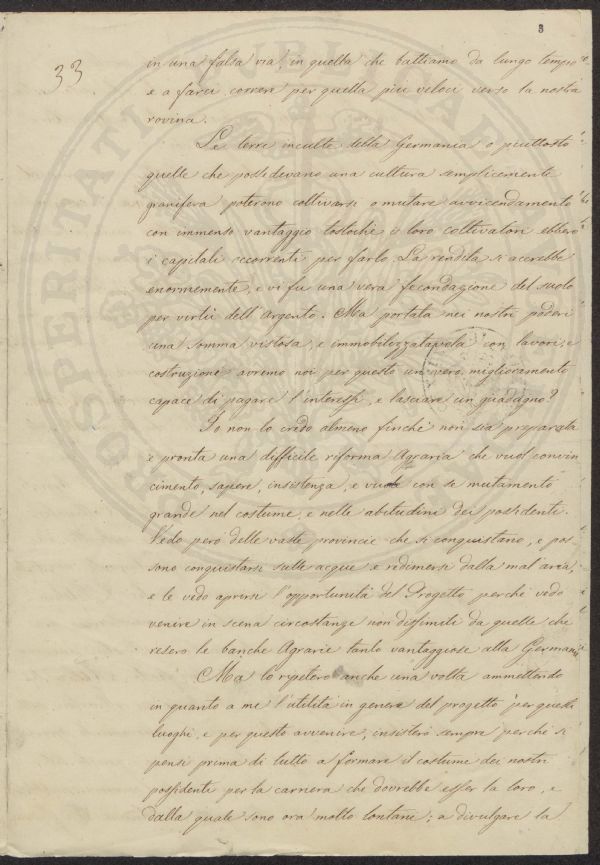 3
33
in una falsa via, in quella che battiamo da lungo tempo
e a farci correre per quella più veloci verso la nostra
rovina.
Le terre inculte della Germania o piuttosto
quelle che possedevano una cultura semplicemente
granifera poterono coltivarsi o mutare avvicendamento
con immenso vantaggio tostochè i loro coltivatori ebbero
i capitali occorrenti per farlo. La rendita si accrebbe
enormemente, e vi fu una vera fecondazione del suolo
per virtù dell'Argento. Ma portata nei nostri poderi
una somma vistosa, e immobilizzatavela con lavori, e
costruzione avremo noi per questo un vero miglioramento
capace di pagare l'interesse, e lasciare un guadagno?
Io non lo credo almeno finchè non sia preparata
e pronta una difficile riforma Agraria che vuol convin
cimento, sapere, insistenza, e vuole con se mutamento
grande nel costume, e nelle abitudini dei possidenti.
Vedo però delle vaste provincie che si conquistano, e pos-
sono conquistarsi sulle acque e redimersi dalla mal'aria,
e le vedo aprirsi l'opportunità del Progetto perchè vedo
venire in scena circostanze non dissimili da quelle che
resero le banche Agrarie tanto vantaggiose alla Germania
Ma lo ripeterò anche una volta ammettendo
in quanto a me l'utilità in genere del progetto per questi
luoghi, e per questo avvenire, insisterò sempre perchè si
pensi prima di tutto a formare il costume dei nostri
possidenti per la carriera che dovrebbe esser la loro, e
dalla quale sono ora molto lontani; a divulgare la
PROSPERITATI